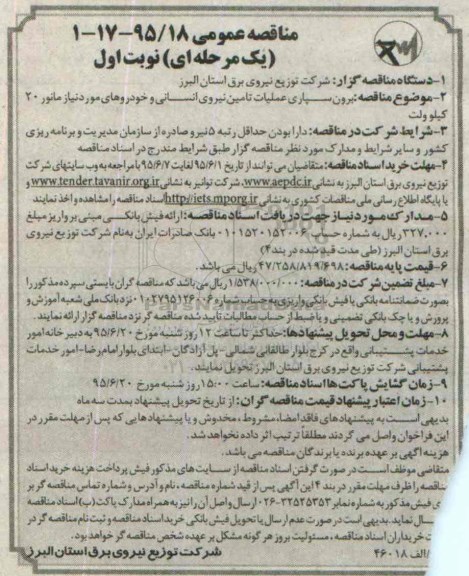 مناقصه عمومی ۹۵/۱۸-۱۷-۱
(یک مرحله ای) نوبت اول
۱-دستگاه مناقصه گزار: شرکت توزیع نیروی برق استان البرز
۲-موضوع مناقصه: برون سپاری عملیات تامین نیروی انسانی و خودروهای مورد نیاز مانور ۲۰
کیلو ولت
۳-شرایط شرکت در مناقصه: دارا بودن حداقل رتبه ۵ نیرو صادره از سازمان مدیریت و برنامه ریزی
کشور و سایر شرایط و مدارک مورد نظر مناقصه گزار طبق شرایط مندرج در اسناد مناقصه
۴-مهلت خرید اسناد مناقصه: متقاضیان می توانند از تاریخ ۹۵/۶/۱ لغایت ۹۵/۶/۷ با مراجعه به وب سایتهای شرکت
توزیع نیروی برق استان البرز به نشانی www.aepdc.ir، شرکت توانیر به نشانی www.tender.tavanir.org.ir و
یا پایگاه اطلاع رسانی ملی مناقصات کشوری به نشانی http//iets.mporg.ir اسناد مناقصه را مشاهده و اخذ نمایند
۵-مدارک مورد نیاز جهت دریافت اسناد مناقصه: ارائه فیش بانکی مبنی بر واریز مبلغ
۳۲۷,۰۰۰ ریال به شماره حساب ۰۱۰۱۵۲۰۱۵۲۰۰۶ بانک صادرات ایران به نام شرکت توزیع نیروی
برق استان البرز (طی مدت قید شده در بند ۴)
۶-قیمت پایه مناقصه: ۴۷/۲۵۸/۸۱۹/۶۹۸ ریال می باشد.
۷-مبلغ تضمین شرکت در مناقصه: ۱/۵۳۸/۰۰۰/۰۰۰ ریال می باشد که مناقصه گران بایستی سپرده مذکور را
بصورت ضمانتنامه بانکی یا فیش بانکی واریزی به حساب شماره ۰۱۰۲۷۹۵۱۲۶۰۰۶ نزد بانک ملی شعبه آموزش و
پرورش و یا چک بانکی تضمینی و یا ضبط از حساب مطالبات تایید شده مناقصه گر نزد مناقصه گزار ارائه نمایند.
۸-مهلت و محل تحویل پیشنهادها: حداکثر تا ساعت ۱۲ روز شنبه مورخ ۹۵/۶/۲۰ به دبیرخانه امور
خدمات پشتیبانی واقع در کرج بلوار طالقانی شمالی-پل آزادگان-ابتدای بلوار امام رضا-امور خدمات
پشتیبانی شرکت توزیع نیروی برق استان البرز تحویل نمایند.
۹-زمان گشایش پاکت ها اسناد مناقصه: ساعت ۱۵:۰۰ روز شنبه مورخ ۹۵/۶/۲۰
۱۰-زمان اعتبار پیشنهاد قیمت مناقصه گران: از تاریخ تحویل پیشنهاد بمدت سه ماه
بدیهی است به پیشنهادهای فاقد امضا، مشروط، مخدوش و یا پیشنهادهایی که پس از مهلت مقرر در
این فراخوان واصل می گردند مطلقاً ترتیب اثر داده نخواهد شد.
هزینه آگهی بر عهده برنده یا برندگان مناقصه می باشد.
متقاضی موظف است در صورت گرفتن اسناد مناقصه از سایت های مذکور فیش پرداخت هزینه خرید اسناد
مناقصه را ظرف مهلت مقرر در بند ۴ این آگهی پس از قید شماره مناقصه، نام و آدرس و شماره تماس مناقصه گر بر
ی فیش مذکور به شماره نمابر ۳۲۵۲۵۳۵۳-۰۲۶ ارسال و اصل آن را نیز به همراه مدارک پاکت (ب) اسناد مناقصه
سال نماید. بدیهی است در صورت عدم ارسال یا تحویل فیش بانکی خرید اسناد مناقصه و ثبت نام مناقصه گر در
ت خریداران اسناد مناقصه، مسئولیت بروز هر گونه مشکل بر عهده شخص مناقصه گر خواهد بود.
/الف ۴۶۰۱۸
شرکت توزیع نیروی برق استان البرز